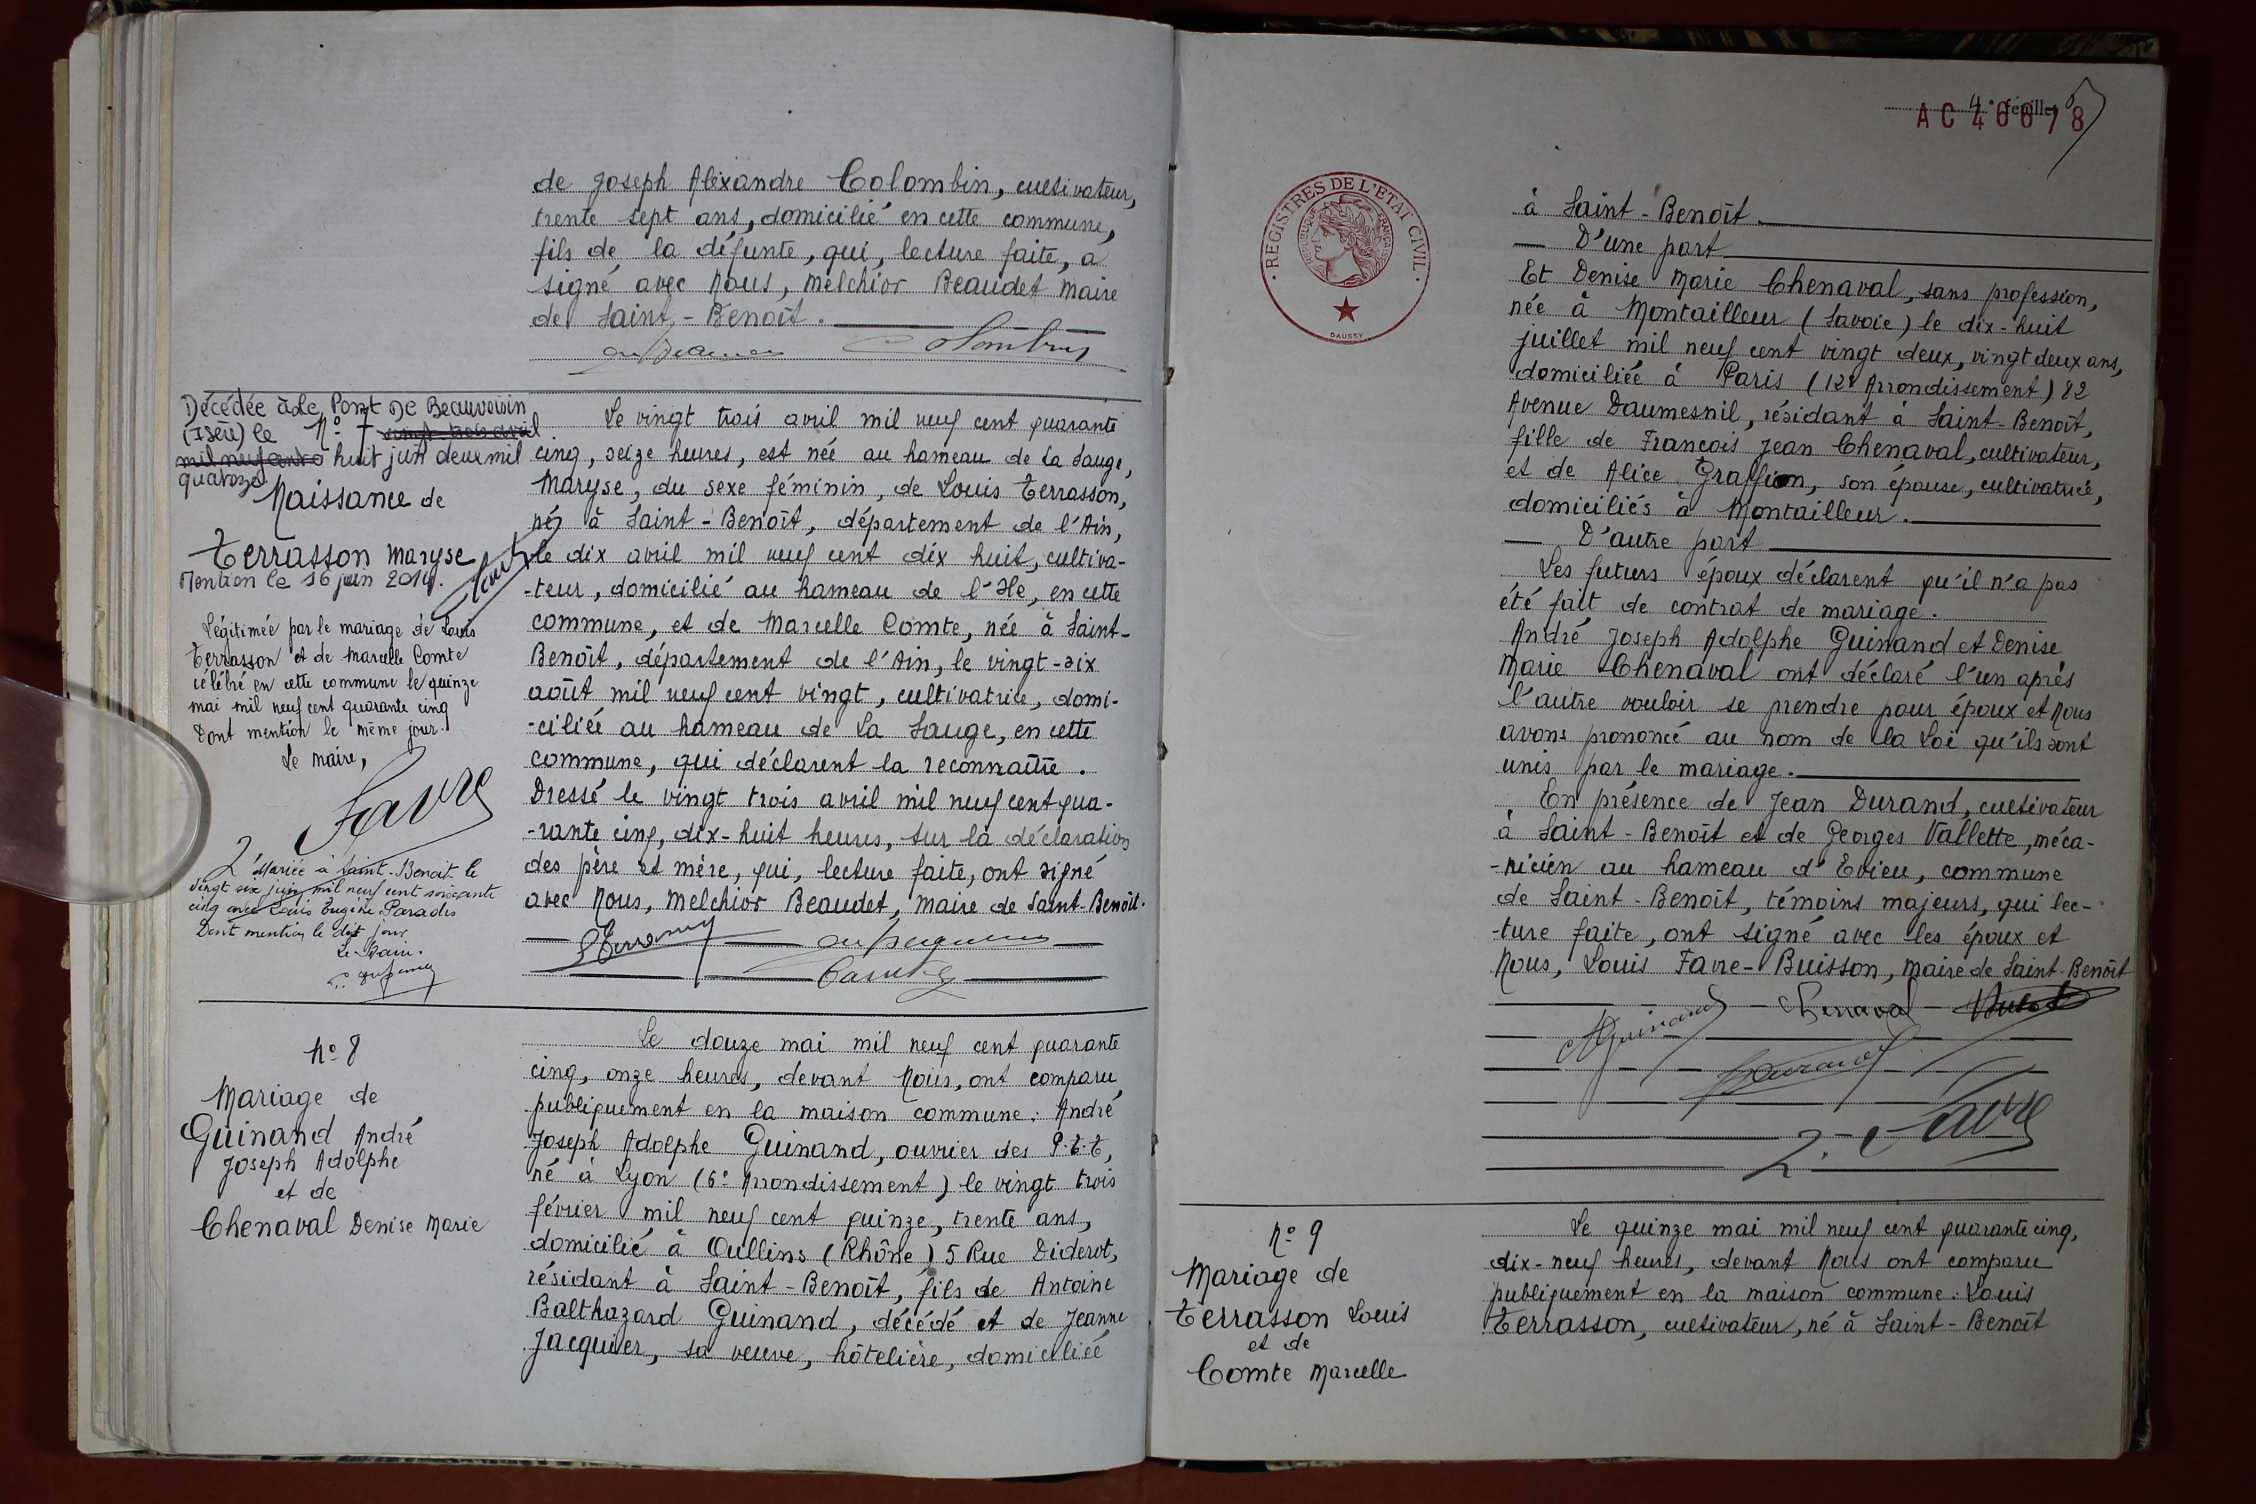 de Joseph Alexandre Colombin, cultivateur,
trente sept ans, domicilié en cette commune,
fils de la défunte, qui, lecture faite, a
signé avec Nous, Melchior Beaudet maire
de Saint-Benoît.
Décédée à Le Pont De Beauvoisin
(Isère) le N° 7 vingt trois avril
mil neuf cent huit juin deux mil
quatorze
Naissance de
Terrasson Maryse
Mention le 16 juin 2014.
Légitimée par le mariage de Louis
Terrasson et de Marcelle Comte
célébré en cette commune le quinze
mai mil neuf cent quarante cinq
Dont mention le même jour.
Le Maire,
Favre
Mariée à Saint-Benoit le
vingt six juin mil neuf cent soixante
cinq avec Louis Eugène Paradis
Dont mention le dit jour
Le Maire.
Le vingt trois avril mil neuf cent quarante
cinq, seize heures, est née au hameau de La Sauge,
Maryse, du sexe féminin, de Louis Terrasson,
né à Saint-Benoît, département de l'Ain,
le dix avril mil neuf cent dix huit, cultiva-
-teur, domicilié au hameau de l'Ile, en cette
commune, et de Marcelle Comte, née à Saint-
Benoît, département de l'Ain, le vingt-six
août mil neuf cent vingt, cultivatrice, domi-
-ciliée au hameau de La Sauge, en cette
commune, qui déclarent la reconnaître.
Dressé le vingt trois avril mil neuf cent qua-
-rante cinq, dix-huit heures, sur la déclaration
des père et mère, qui, lecture faite, ont signé
avec Nous, Melchior Beaudet, maire de Saint-Benoît.
N° 8
Mariage de
Guinand André
Joseph Adolphe
et de
Chenaval Denise Marie
Le douze mai mil neuf cent quarante
cinq, onze heures, devant Nous, ont comparu
publiquement en la maison commune: André
Joseph Adolphe Guinand, ouvrier des P.T.T,
né à Lyon (6e Arrondissement) le vingt trois
février mil neuf cent quinze, trente ans,
domicilié à Oullins (Rhône) 5 Rue Diderot,
résidant à Saint-Benoît, fils de Antoine
Balthazard Guinand, décédé et de Jeanne
Jacquier, sa veuve, hôtelière, domiciliée
4e feuille
AC 40078
REGISTRES DE L'ETAT CIVIL
REPUBLIQUE FRANÇAISE
DAUSSY
à Saint-Benoît
D'une part
Et Denise Marie Chenaval, sans profession,
née à Montailleur (Savoie) le dix-huit
juillet mil neuf cent vingt deux, vingt deux ans,
domiciliée à Paris (12e Arrondissement) 82
Avenue Daumesnil, résidant à Saint-Benoît,
fille de François Jean Chenaval, cultivateur,
et de Alice Graffion, son épouse, cultivatrice,
domiciliés à Montailleur.
D'autre part
Les futurs époux déclarent qu'il n'a pas
été fait de contrat de mariage.
André Joseph Adolphe Guinand et Denise
Marie Chenaval ont déclaré l'un après
l'autre vouloir se prendre pour époux et Nous
avons prononcé au nom de la Loi qu'ils sont
unis par le mariage.
En présence de Jean Durand, cultivateur
à Saint-Benoît et de Georges Vallette, méca-
-nicien au hameau d'Evieu, commune
de Saint-Benoît, témoins majeurs, qui lec-
-ture faite, ont signé avec les époux et
Nous, Louis Favre-Buisson, maire de Saint-Benoît
Guinand Chenaval
Durand
L. Favre
N° 9
Mariage de
Terrasson Louis
et de
Comte Marcelle
Le quinze mai mil neuf cent quarante cinq,
dix-neuf heures, devant Nous ont comparu
publiquement en la maison commune: Louis
Terrasson, cultivateur, né à Saint-Benoît